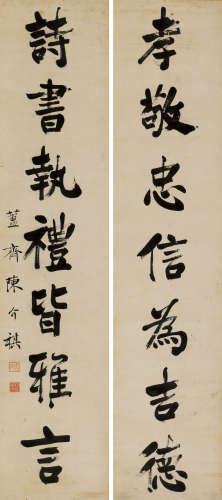 孝敬忠信為吉德
詩書執禮皆雅言
簠齊陳介祺